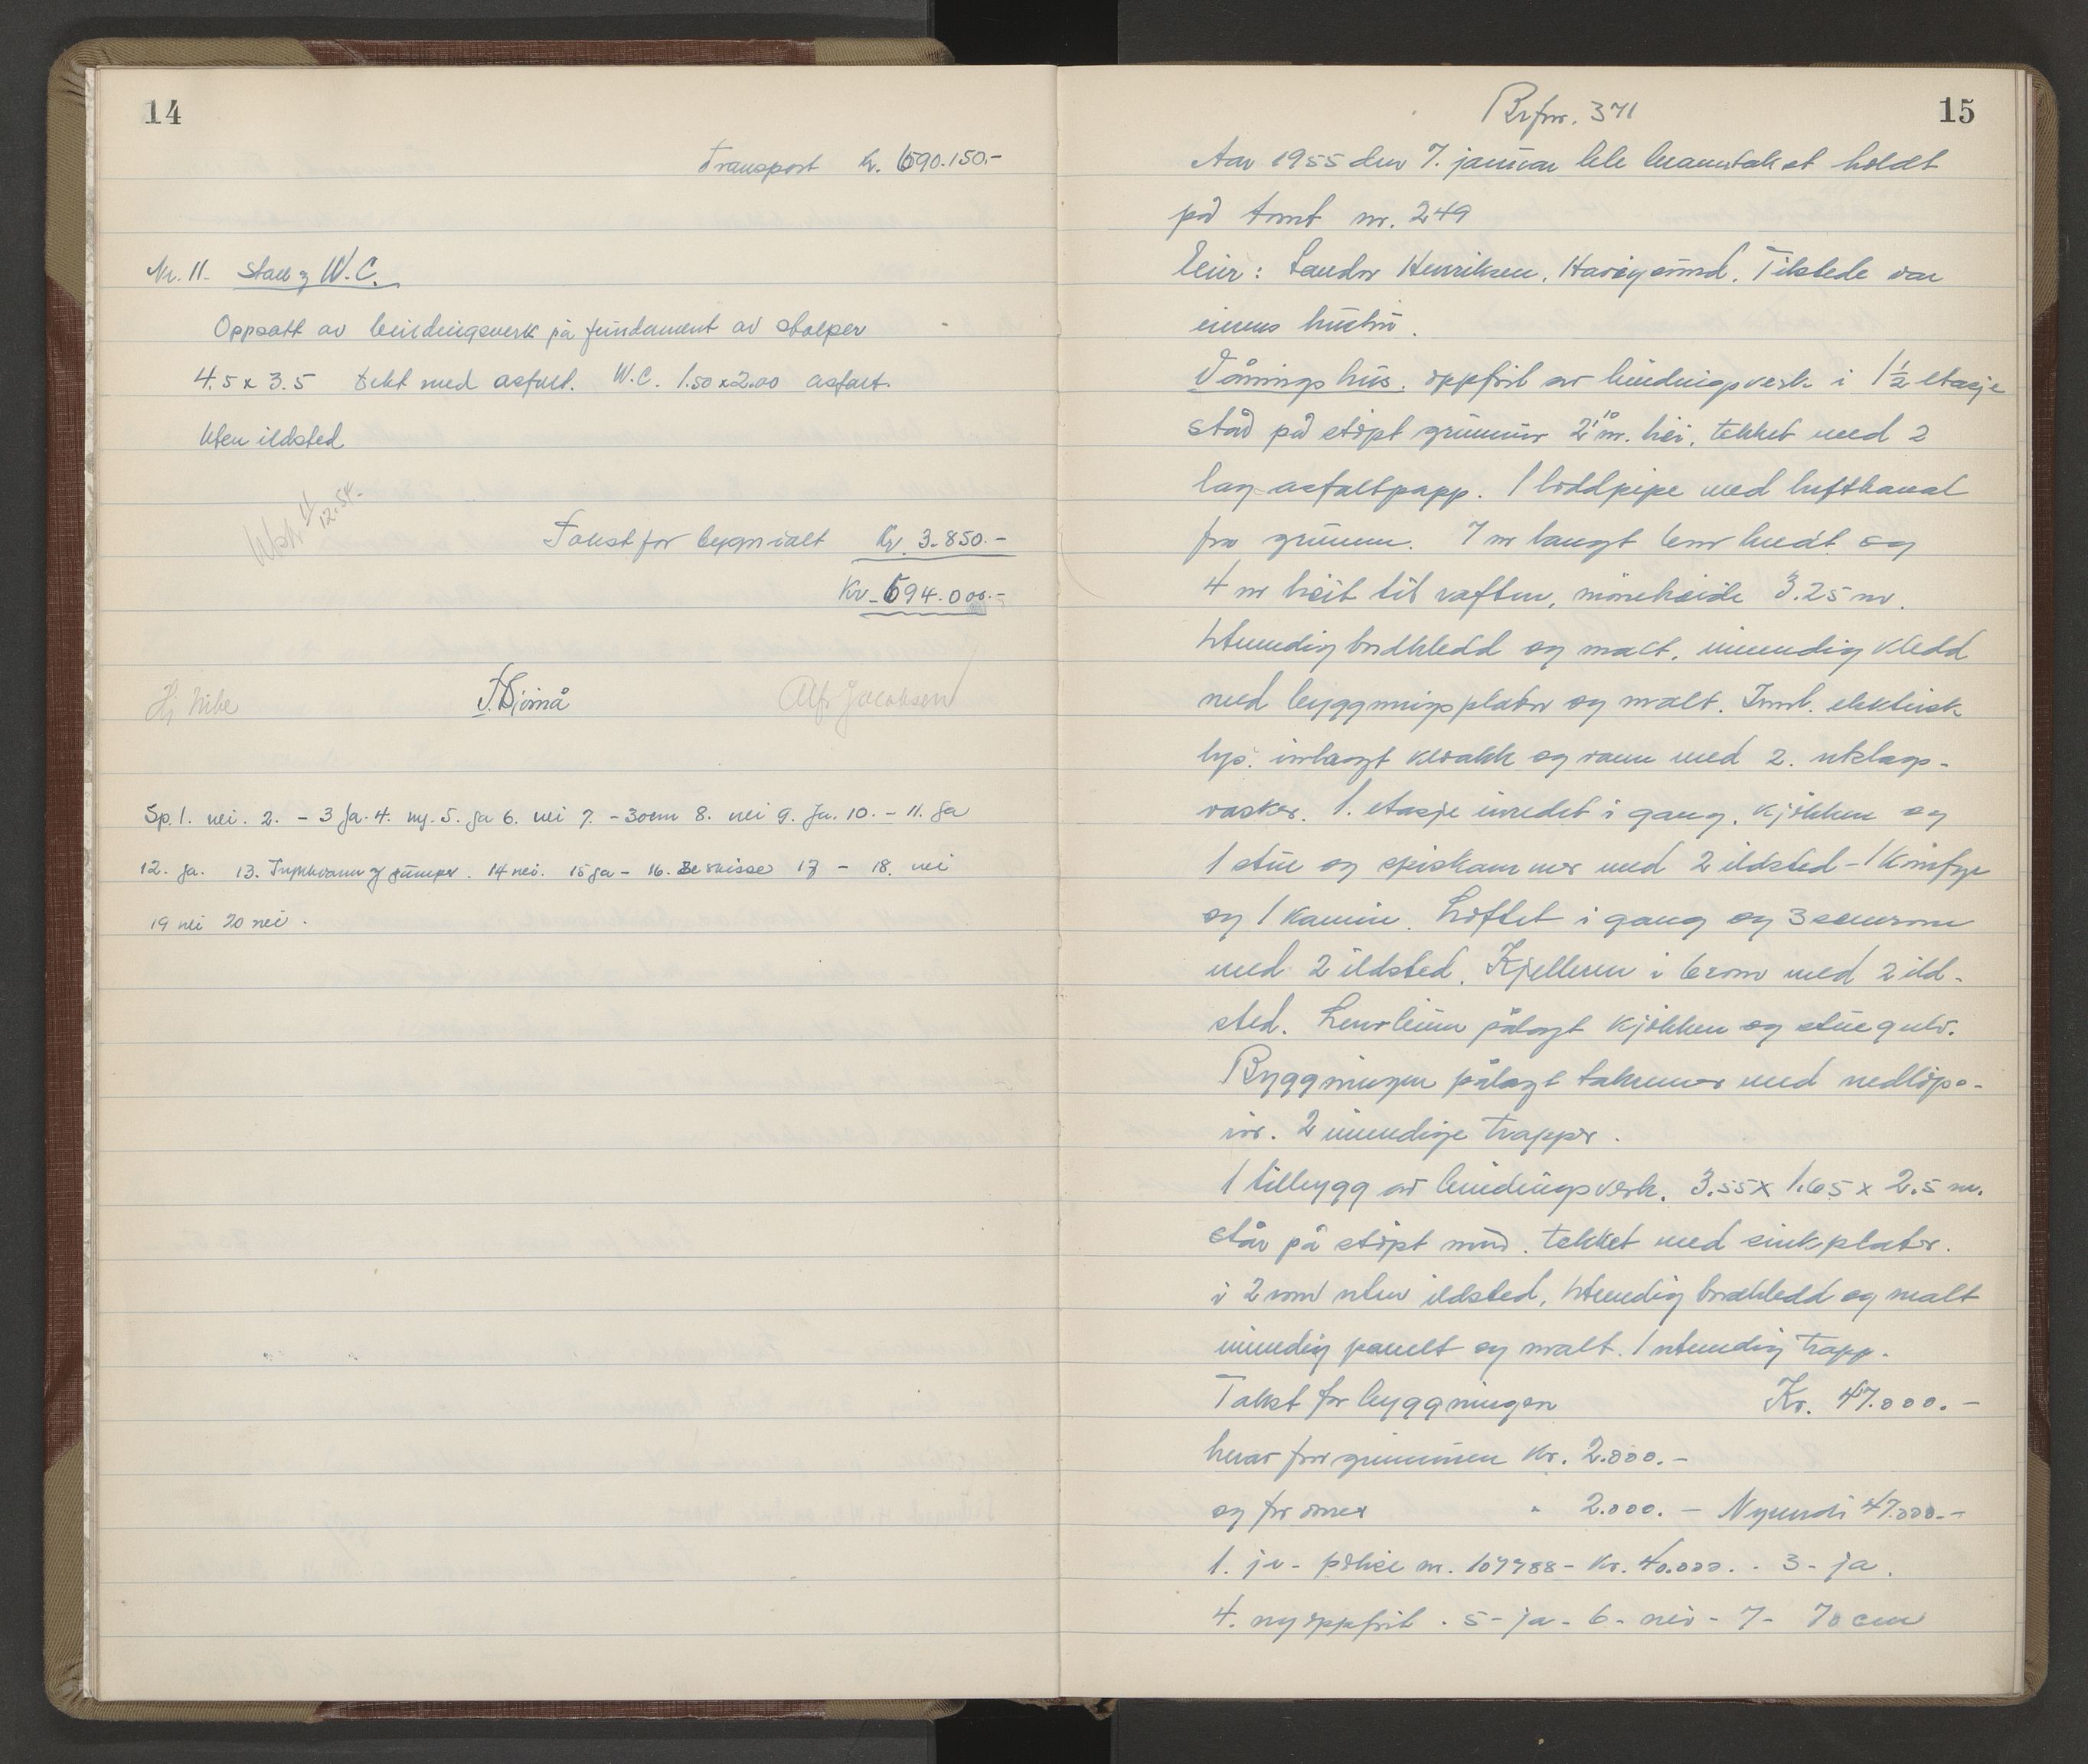 14
Transport kr. 690.150.-
Nr. 11. Stall og W.C.
Oppsatt av bindingsverk på fundament av stolper
4.5 x 3.5 tekt med asfalt. W.C. 1.50 x 2.00 asfalt.
Uten ildsted
12.54.-
Takst for bygn ialt Kr. 3.850.-
Kr. 694.000.-
Hj Nibe J. Bjørnå Alf Jacobsen
Sp. 1. nei. 2. - 3 Ja. 4. ny. 5. ja 6. nei 7. - 30cm 8. nei 9. Ja. 10. - 11. Ja
12. ja. 13. Trykkvann og pumper. 14 nei. 15 ja - 16. Se skisse 17 - 18. nei
19 nei 20 nei.
15
Brfnr. 371
Aar 1955 den 7. januar ble branntakst holdt
på tomt nr. 249
Eier: Sandor Henriksen, Havøysund. Tilstede var
eierens hustru.
Våningshus. oppført av bindingsverk i 1½ etasje
står på støpt grunnur 2.10 m. høi, tekket med 2
lag asfaltpapp. 1 loddpipe med luftkanal
fra grunnen. 7 m langt 6m bredt og
4 m høit til raften, mønehøide 3.25 m.
Utvendig bordkledd og malt, innvendig kledd
med byggningsplater og malt. Innl. elektrisk
lys. innlagt kloakk og vann med 2. utslags-
vasker. 1. etasje innredet i gang, kjøkken og
1 stue og spiskammer med 2 ildsted - 1 komfyr
og 1 kamin. Loftet i gang og 3 soverom
med 2 ildsted. Kjelleren i 6 rom med 2 ild-
sted. Linoleum pålagt kjøkken og stuegulv.
Byggningen pålagt takrenner med nedløps-
rør. 2 innvendige trapper.
1 tilbygg av bindingsverk. 3.55 x 1.65 x 2.5 m.
står på støpt mur. tekket med sinkplater.
i 2 rom uten ildsted, Utvendig bordkledd og malt
innvendig panelt og malt. 1 utvendig trapp.
Takst for byggningen Kr. 47.000.-
herav for grunnmuren kr. 2.000.-
og for ovner " 2.000.- Nyverdi 47.000.-
1. ja - polise nr. 107788 - kr. 40.000.- 3 - ja.
4. ny oppført. 5 - ja - 6 - nei - 7 - 70 cm